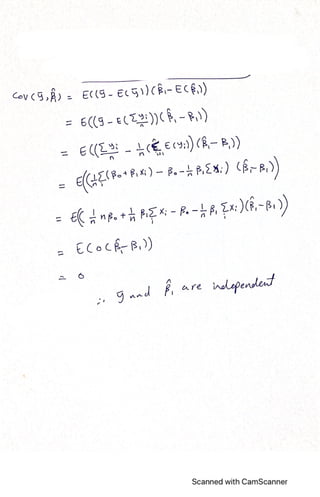 Cov(ȳ, β̂₁) = E((ȳ - E(ȳ))(β̂₁ - E(β̂₁))
= E((ȳ - E(Σyᵢ/n))(β̂₁ - β₁))
= E((Σyᵢ/n - 1/n(Σ E(yᵢ))(β̂₁ - β₁))
= E((1/n Σ(β₀ + β₁xᵢ) - β₀ - 1/n β₁Σxᵢ) (β̂₁ - β₁))
= E((1/n nβ₀ + 1/n β₁Σxᵢ - β₀ - 1/n β₁ Σxᵢ)(β̂₁ - β₁))
= E(0(β̂₁ - β₁))
= 0
∴ ȳ and β̂₁ are independent
Scanned with CamScanner